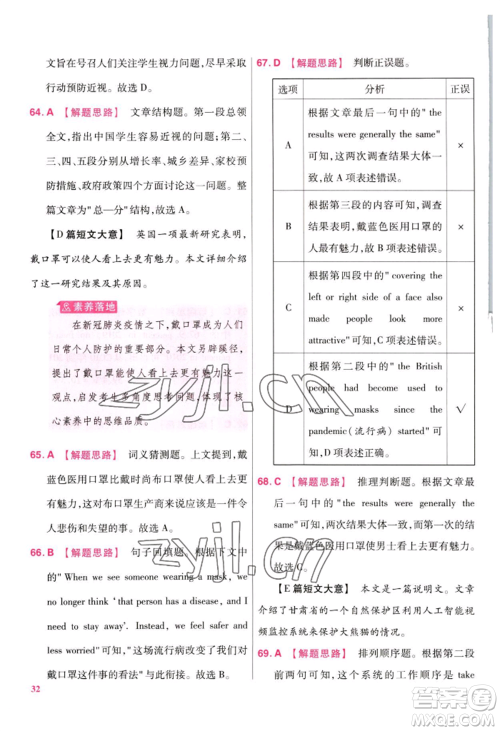 文旨在号召人们关注学生视力问题,尽早采取
行动预防近视。故选 D。
64. A 【解题思路】 文章结构题。第一段总领
全文,指出中国学生容易近视的问题,第二、
三、四、五段分别从年龄增长、城乡差异、家校
预防措施、政府政策四个方面讨论这一问题。
整篇文章为“总—分”结构,故选 A。
【D 篇短文大意】 英国一项最新研究表明,
戴口罩可以使人看上去更有魅力。本文详细介
绍了这一研究结果及其原因。
素养落地
在新冠肺炎疫情之下,戴口罩成为人们
日常个人防护的重要部分。本文另辟蹊径,
提出了戴口罩能使人看上去更有魅力这一
观点,启发考生多角度思考问题,体现了核
心素养中的思维品质。
65. A 【解题思路】 词义猜测题。上文提到,戴
蓝色医用口罩比戴时尚布口罩看上去更有
更有魅力,这对布口罩生产商来说应该是一件令
人悲伤和失望的事。故选 A。
66. B 【解题思路】 句子回填题。根据下文中的
"When we see someone wearing a mask, we
no longer think ‘that person has a disease, and I
have to stay away’. Instead, we feel safer and
less worried"可知,B 项“流行病已经改变了我们对
戴口罩的人的看法”与此衔接。故选 B。
67. D 【解题思路】 判断正误题。
选项 分析 正误
A 根据文章最后一句中的"the
results were generally the same"
可知,两次调查结果大体一
致,故 A 项表述错误。 ×
B 根据第三段的内容可知,戴
蓝色医用口罩的人最有魅
力,故 B 项表述错误。 ×
C 根据第四段中的"covering the
left or right side of a face also
made people look more
attractive"可知,C 项表述错误。 ×
D 根据第二段中的"the British
people had become used to
wearing masks since the
pandemic (流行病) started"可
知,D 项表述正确。 √
68. C 【解题思路】 推理判断题。根据文章最后
一句中的"the results were generally the
same"可知,两次的结果大体相同,因此女性
戴蓝色医用口罩对男士看上去更有魅力。
故选 C。
【E 篇短文大意】 本文是一篇说明文。文章
介绍了甘肃省的自然保护区利用人工智能视
频监控系统保护大熊猫的情况。
69. A 【解题思路】 排列顺序题。根据第二段
前两句可知,这个系统的工作顺序是 take
32
zyjl.cn
zyjl.cn
答案圈
MXQE.COM